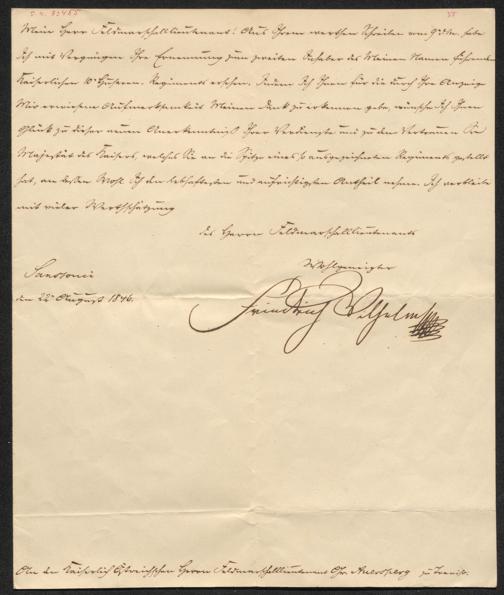 Mein Herr Feldmarschalllieutenant! Aus Ihrem werthen Schreiben vom 9. d. M. habe
Ich mit Vergnügen Ihre Ernennung zum zweiten Inhaber des Meinen Namen führenden
Kaiserlichen 10. Husaren-Regiments ersehen. Indem Ich Ihnen für die durch Ihre Anzeige
Mir erwiesene Aufmerksamkeit Meinen Dank zu erkennen gebe, wünsche Ich Ihnen
Glück zu dieser neuen Anerkenntniß Ihrer Verdienste und zu dem Vertrauen Sr
Majestät des Kaisers, welches Sie an die Spitze eines so ausgezeichneten Regiments gestellt
hat, an dessen Wohl Ich den lebhaftesten und aufrichtigsten Antheil nehme. Ich verbleibe
mit vieler Werthschätzung
des Herrn Feldmarschalllieutenants
Wohlgeneigter
Sanssouci
den 22. August 1846.
Friedrich Wilhelm
An den Kaiserlich Östreichschen Herrn Feldmarschalllieutenant Auersperg zu